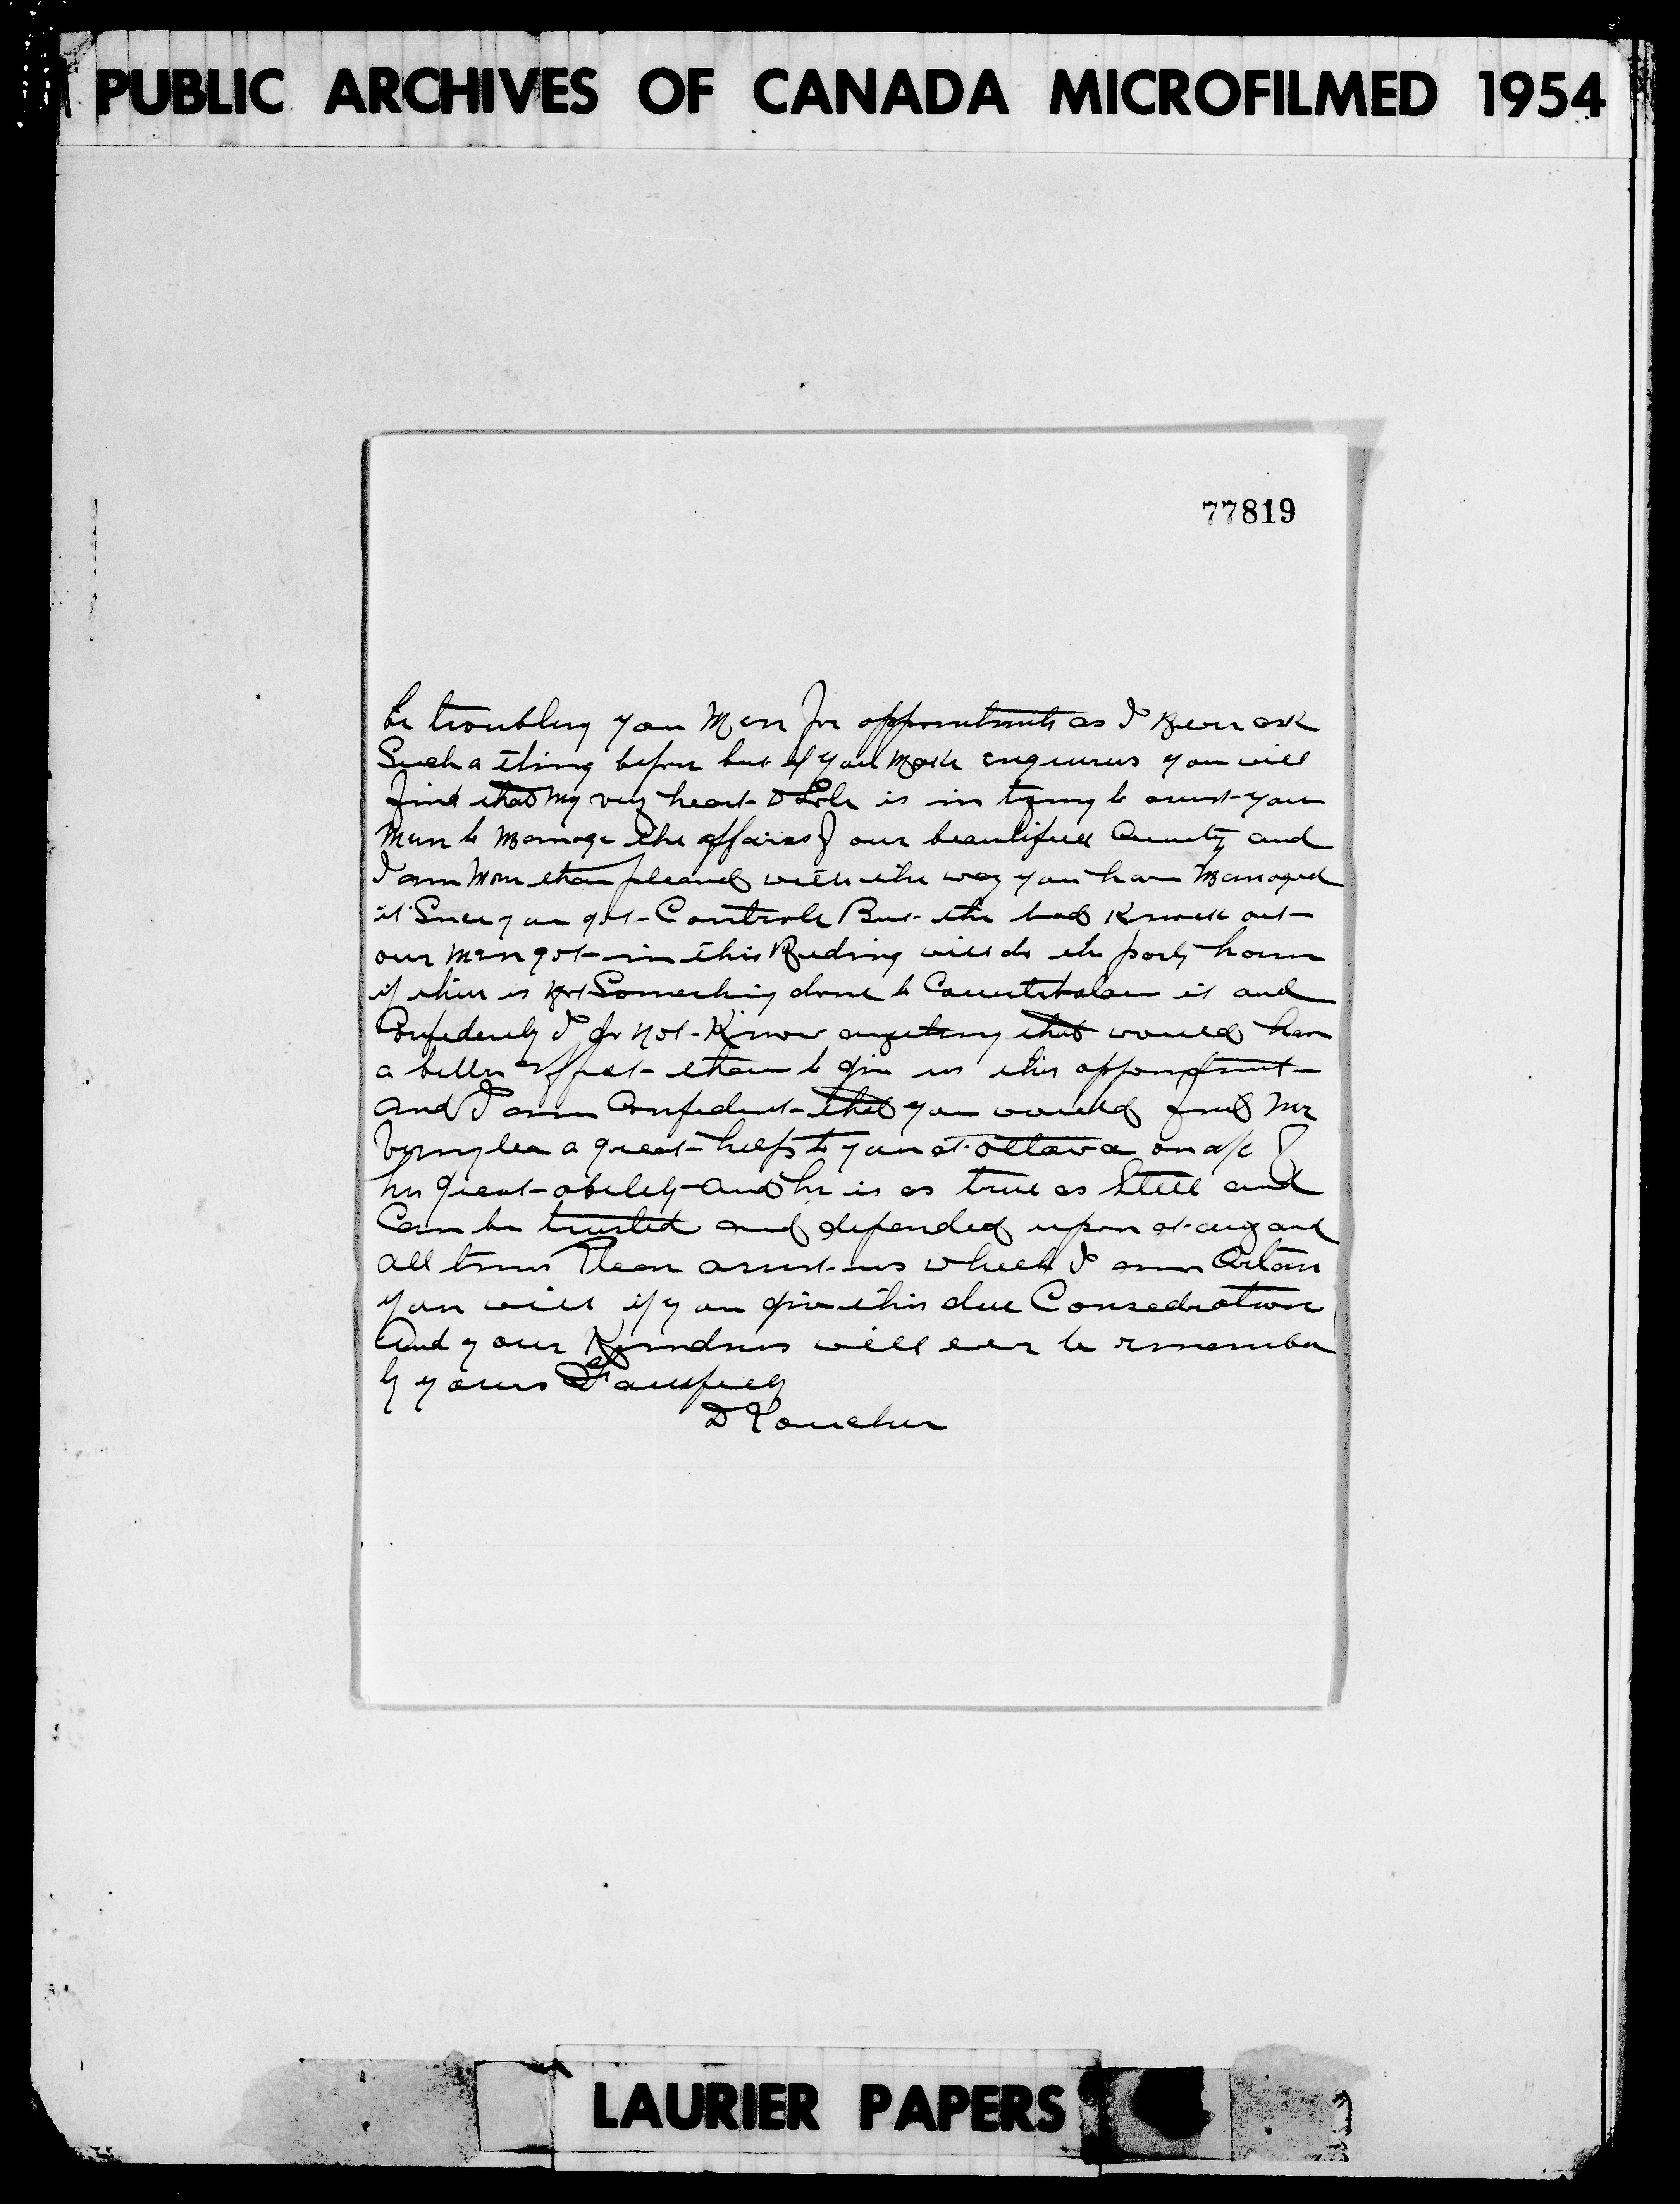 PUBLIC ARCHIVES OF CANADA MICROFILMED 1954
77819
be troubling you men for appointments as I never ask
Such a thing before but if you make enquires you will
find that my very heart & Sole is in trying to assist you
men to manage the affairs of our beautifull County and
I am more than pleased with the way you have managed
it Since you got Controle But the bad Knock out
our men got in this Riding will do the party harm
if thier is not Something done to Counterbalance it and
Confidently I do not Know anything that would have
a better effect than to give us this appointment
and I am Confident that you would find Mr
a great help to you at ottawa on a/c of
his great ability and he is as true as Steel and
Can be trusted and depended upon at any and
all times Please assist us which I am Certain
you will if you give this due Consederation
And your Kindness will ever be remember
by yours Faithfully
D
LAURIER PAPERS